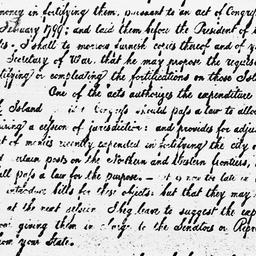 money in fortifying them, pursuant to an act of Congre
February 1799; and laid them before the President of t
ts. I shall to morrow furnish copies thereof and of yo
Secretary of War, that he may propose the requis
tifying or compleating the fortifications on those Isl
One of the acts authorizes the expenditure
Island Congress should pass a law to allow
during a cession of jurisdiction: and provides for adju
of monies recently expended in fortifying the city o
certain posts on the Northern and Western frontiers,
all pass a law for the purpose. — It is now too late in
introduce bills for these objects: but that they may
at the next session I beg leave to suggest the exp
giving them in charge to the Senators or Repre
from your State.